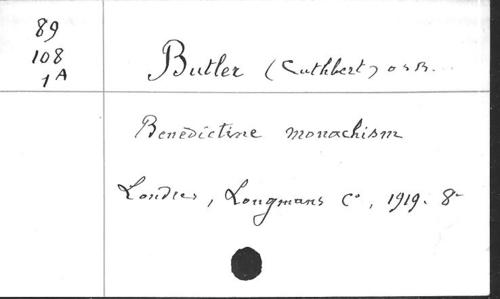 89
108
1A
Butler (Cuthbert) O S B.
Benedictine monachism
Londres, Longmans Co, 1919. 8º